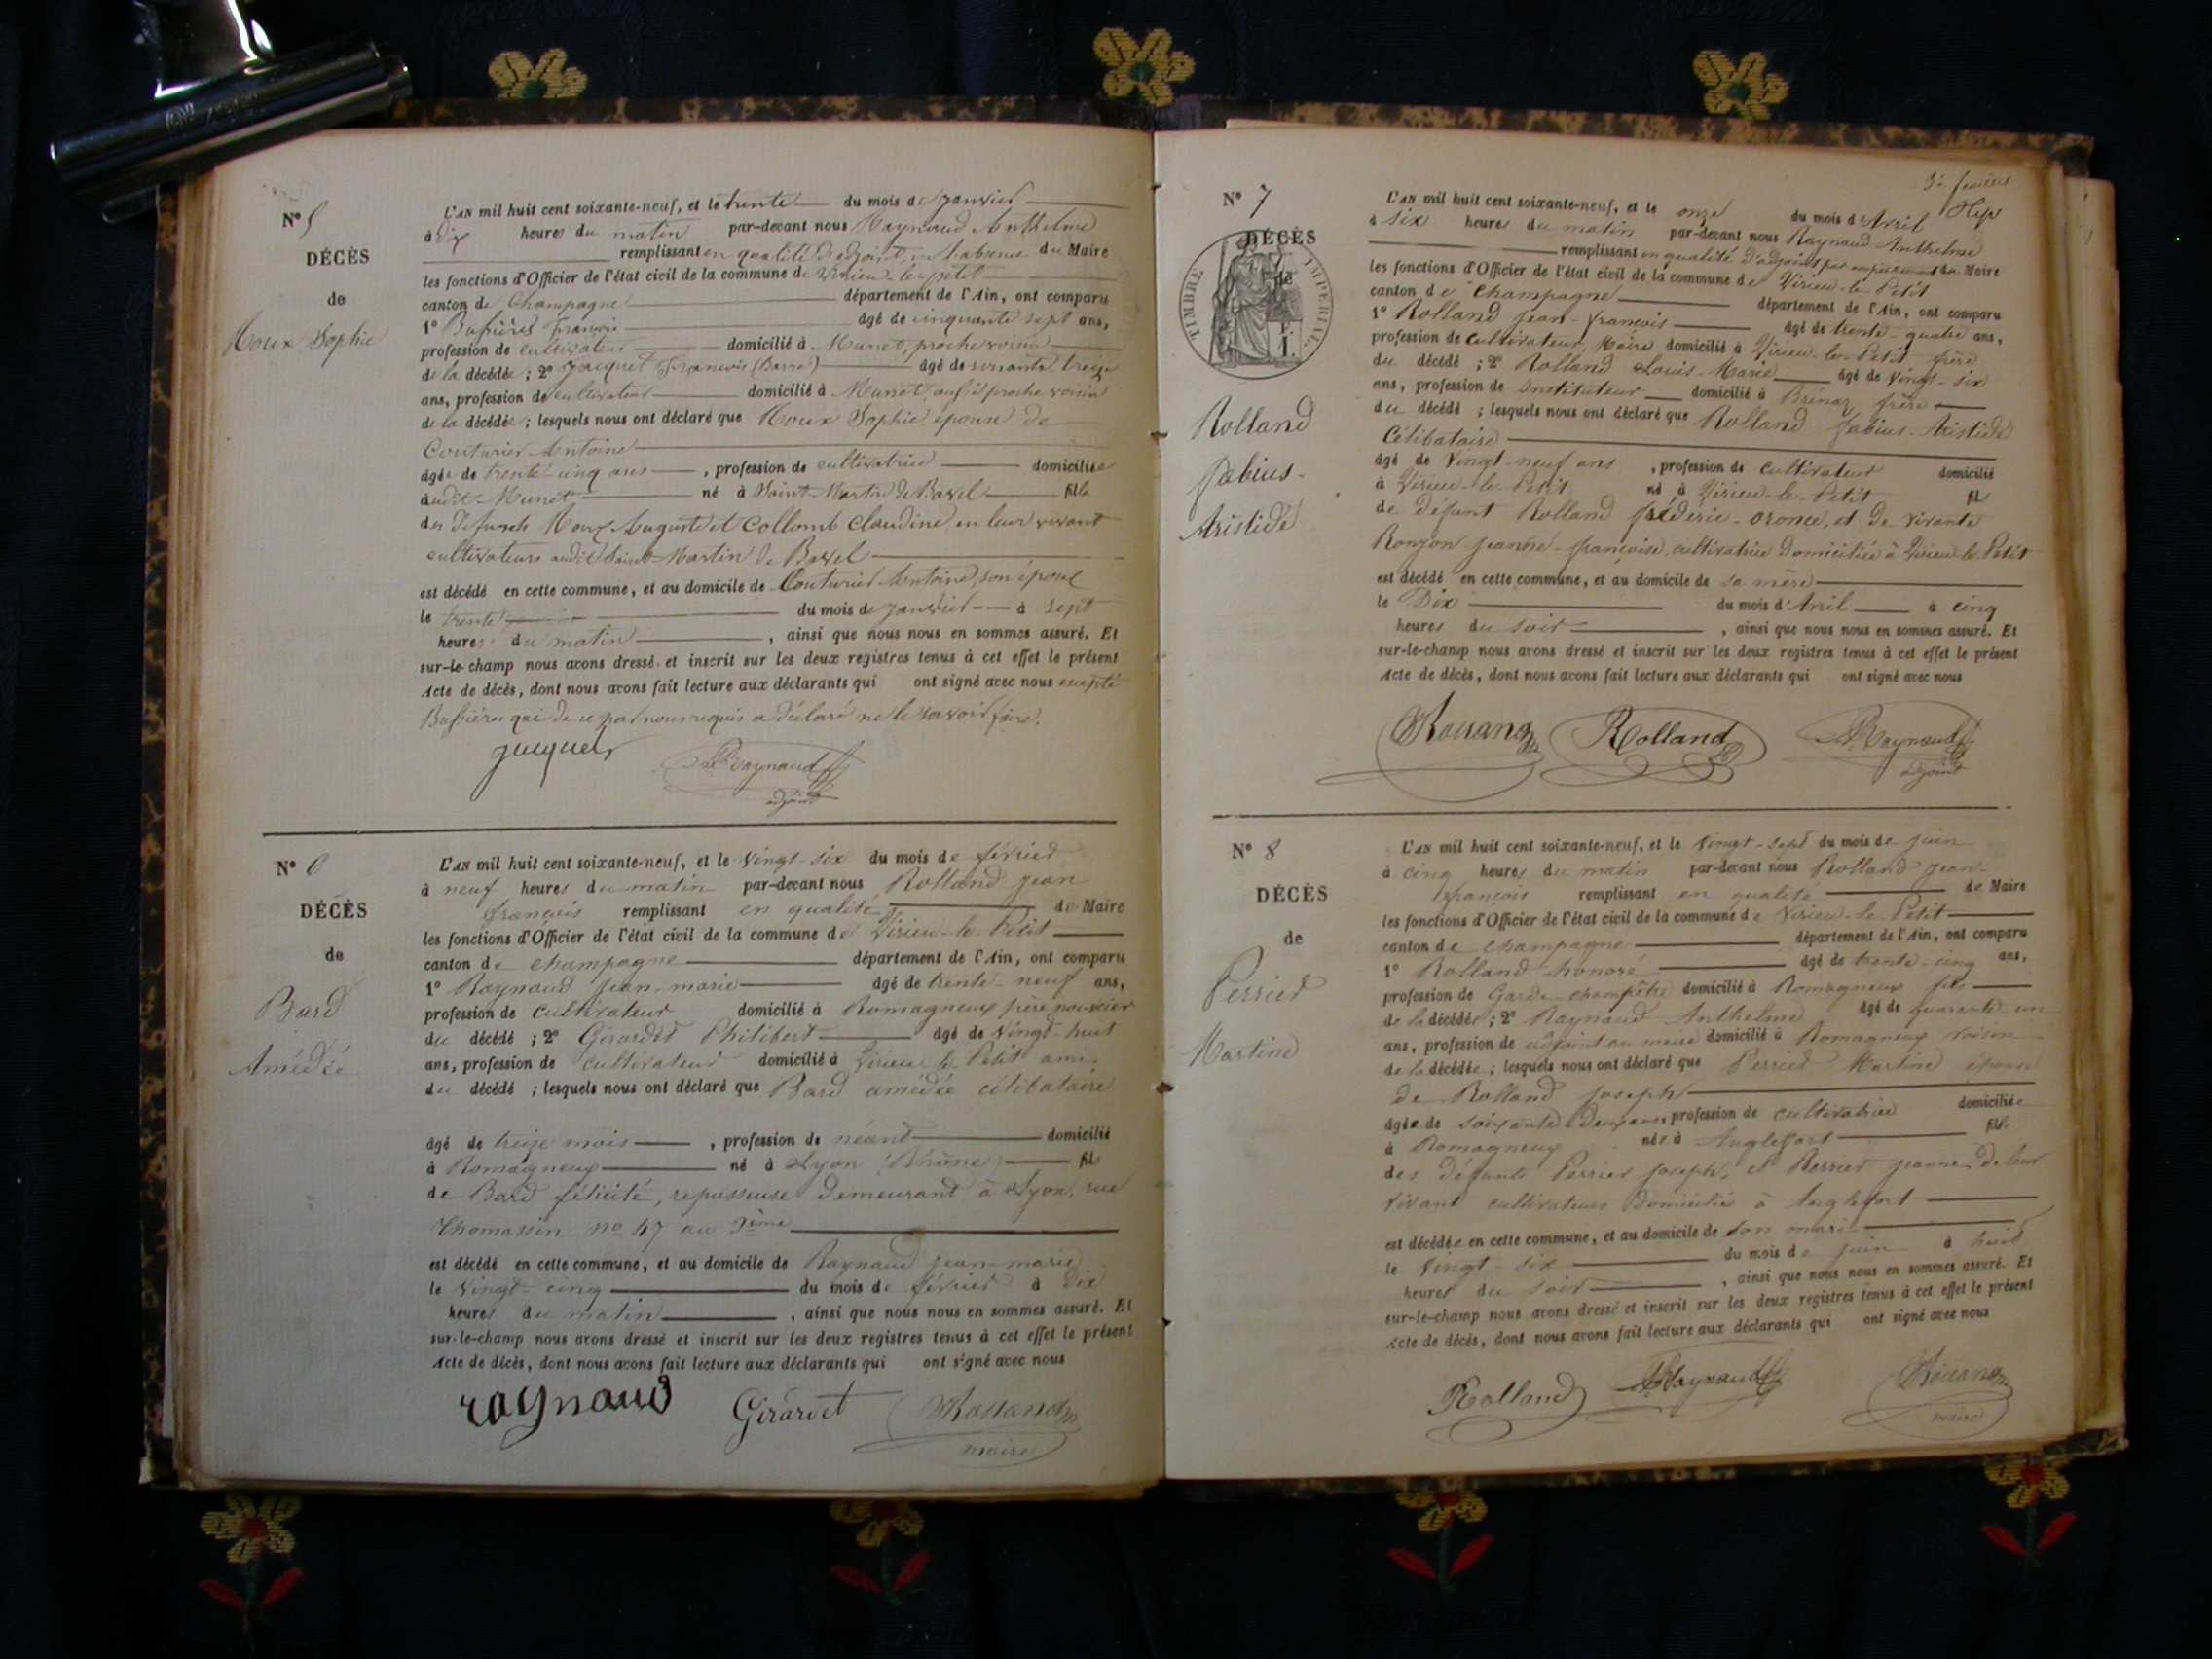 N° 5
DÉCÈS
de
Roux Sophie
L'AN mil huit cent soixante-neuf, et le trente du mois de janvier
à dix heures du matin par-devant nous Raynaud Anthelme
remplissant en qualité d'adjoint, en l'absence du Maire
les fonctions d'Officier de l'état civil de la commune de Virieu-le-petit
canton de Champagne département de l'Ain, ont comparu
1° Bussières François âgé de cinquante sept ans,
profession de cultivateur domicilié à Munet, proche voisin
de la décédée ; 2° Jacquet François (Barre) âgé de soixante treize
ans, profession de cultivateur domicilié à Munet, aussi proche voisin
de la décédée ; lesquels nous ont déclaré que Roux Sophie, épouse de
Couturier Antoine
âgée de trente-cinq ans , profession de cultivatrice domiciliée
audit Munet né à Saint-Martin de Bavel fille
des défunts Roux Auguste et Collomb Claudine, en leur vivant
cultivateurs audit Saint-Martin de Bavel
est décédé en cette commune, et au domicile de Couturier Antoine, son époux
le trente du mois de janvier à sept
heures du matin , ainsi que nous nous en sommes assuré. Et
sur-le-champ nous avons dressé et inscrit sur les deux registres tenus à cet effet le présent
Acte de décès, dont nous avons fait lecture aux déclarants qui ont signé avec nous excepté
Bussières qui de ce par nous requis a déclaré ne le savoir faire.
jacquet Raynaud
adjoint
N° 6
DÉCÈS
de
Bard
Amédée
L'AN mil huit cent soixante-neuf, et le vingt-six du mois de février
à neuf heures du matin par-devant nous Rolland jean
françois remplissant en qualité de Maire
les fonctions d'Officier de l'état civil de la commune de Virieu-le-Petit
canton de champagne département de l'Ain, ont comparu
1° Raynaud jean-marie âgé de trente-neuf ans,
profession de cultivateur domicilié à Romagneux père nourricier
du décédé ; 2° Girardet Philibert âgé de vingt-huit
ans, profession de cultivateur domicilié à Virieu-le-Petit ami
du décédé ; lesquels nous ont déclaré que Bard amédée célibataire
âgé de treize mois , profession de néant domicilié
à Romagneux né à Lyon (Rhône) fils
de Bard félicité, repasseuse demeurant à Lyon, rue
Thomassin no 47 au
est décédé en cette commune, et au domicile de Raynaud jean-marie
le vingt-cinq du mois de février à dix
heures du matin , ainsi que nous nous en sommes assuré. Et
sur-le-champ nous avons dressé et inscrit sur les deux registres tenus à cet effet le présent
Acte de décès, dont nous avons fait lecture aux déclarants qui ont signé avec nous
raynaud Girardet Rolland
maire
3e feuillet
N° 7
DÉCÈS
de
TIMBRE IMPERIAL
Rolland
fabius-
Aristide
L'AN mil huit cent soixante-neuf, et le onze du mois d'Avril
à six heures du matin par-devant nous Raynaud Anthelme
remplissant en qualité d'adjoint par empêchement du Maire
les fonctions d'Officier de l'état civil de la commune de Virieu-le-Petit
canton de Champagne département de l'Ain, ont comparu
1° Rolland jean-françois âgé de trente-quatre ans,
profession de cultivateur, Maire domicilié à Virieu-le-Petit frère
du décédé ; 2° Rolland Louis-Marie âgé de vingt-six
ans, profession de Instituteur domicilié à Brénaz frère
du décédé ; lesquels nous ont déclaré que Rolland fabius-Aristide
célibataire
âgé de vingt-neuf ans , profession de cultivateur domicilié
à Virieu-le-Petit né à Virieu-le-Petit fils
de défunt Rolland frédéric-oronce, et de vivante
Ronzon jeanne-françoise, cultivatrice domiciliée à Virieu-le-Petit
est décédé en cette commune, et au domicile de sa mère
le Dix du mois d'Avril à cinq
heures du soir , ainsi que nous nous en sommes assuré. Et
sur-le-champ nous avons dressé et inscrit sur les deux registres tenus à cet effet le présent
Acte de décès, dont nous avons fait lecture aux déclarants qui ont signé avec nous
Rolland Rolland Raynaud
adjoint
N° 8
DÉCÈS
de
Perrier
Martine
L'AN mil huit cent soixante-neuf, et le vingt-sept du mois de juin
à cinq heures du matin par-devant nous Rolland jean-
françois remplissant en qualité de Maire
les fonctions d'Officier de l'état civil de la commune de Virieu-le-Petit
canton de champagne département de l'Ain, ont comparu
1° Rolland honoré âgé de trente-cinq ans,
profession de Garde-champêtre domicilié à Romagneux fils
de la décédée ; 2° Raynaud Anthelme âgé de quarante-un
ans, profession de adjoint au maire domicilié à Romagneux voisin
de la décédée ; lesquels nous ont déclaré que Perrier Martine épouse
de Rolland joseph
âgée de soixante-deux ans, profession de cultivatrice domiciliée
à Romagneux née à Anglefort fille
des défunts Perrier joseph, et Perrier jeanne de leur
vivant cultivateurs domiciliés à Anglefort
est décédée en cette commune, et au domicile de son mari
le vingt-six du mois de juin à huit
heures du soir , ainsi que nous nous en sommes assuré. Et
sur-le-champ nous avons dressé et inscrit sur les deux registres tenus à cet effet le présent
Acte de décès, dont nous avons fait lecture aux déclarants qui ont signé avec nous
Rolland Raynaud Rolland
maire